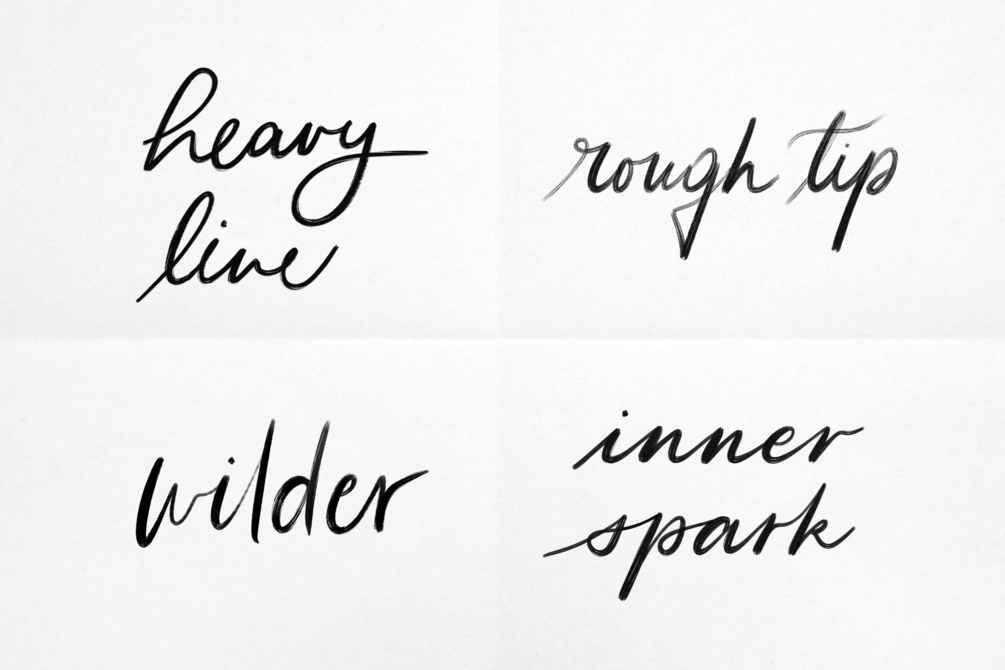 heavy
line
rough tip
wilder
inner
spark